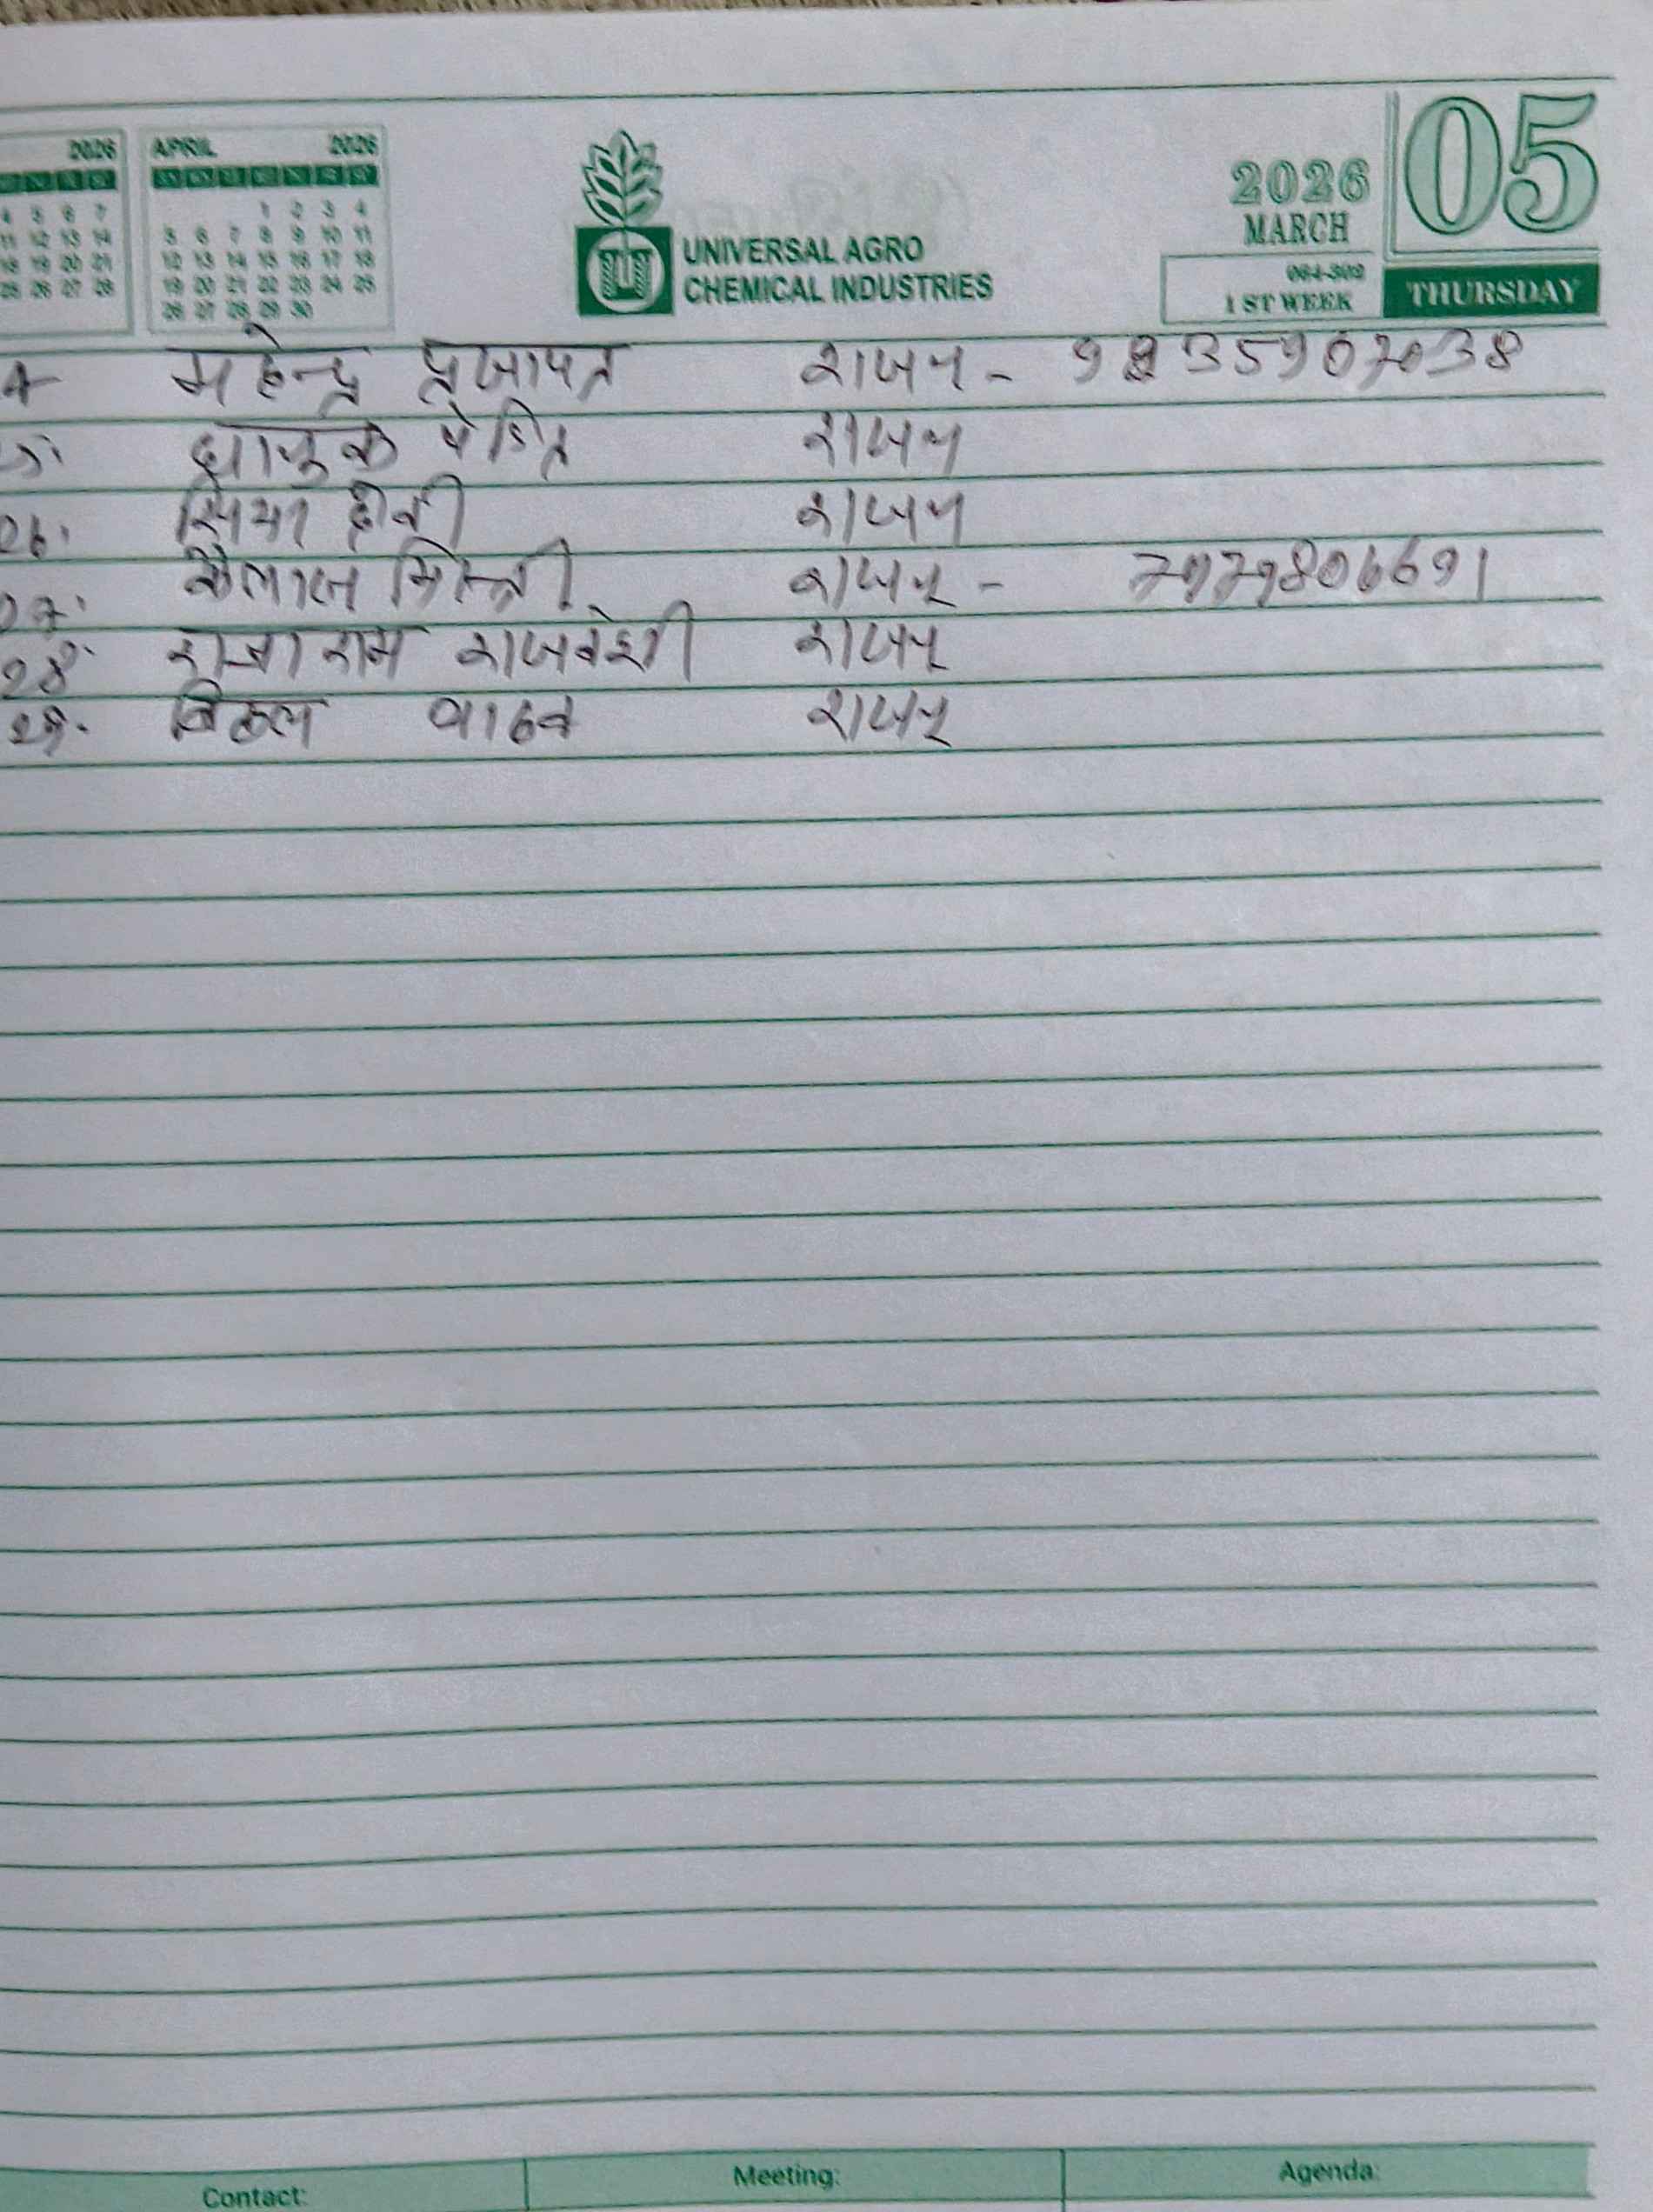 2026 APRIL 2026
4 5 6 7 1 2 3 4
11 12 13 14 5 6 7 8 9 10 11
18 19 20 21 12 13 14 15 16 17 18
25 26 27 28 19 20 21 22 23 24 25
26 27 28 29 30
UNIVERSAL AGRO
CHEMICAL INDUSTRIES
2026
MARCH
05
064-302
1 ST WEEK
THURSDAY
4 महेन्द्र प्रजापत राजन - 9835907038
5. पंडित राजन
26. सिया देवी राजन
27. कैलाश मिस्त्री राजन - 7979806691
28. राजा राम राजवंशी राजन
29. राजन
Contact: Meeting: Agenda: